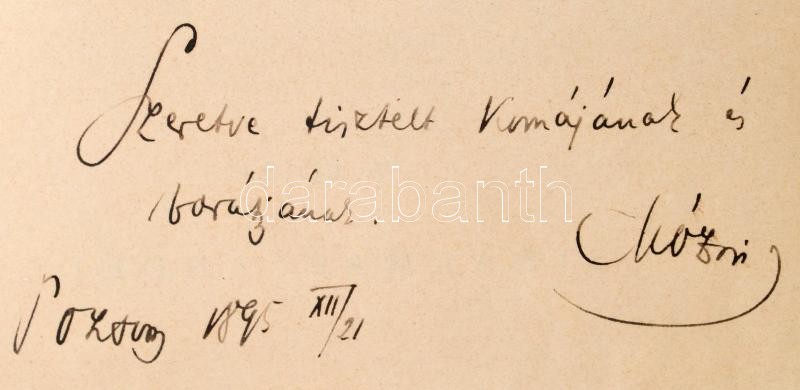 Szeretve tisztelt Komájának és
barátjának.
Mózsi
Pozsony 1895 XII/21
darabanth